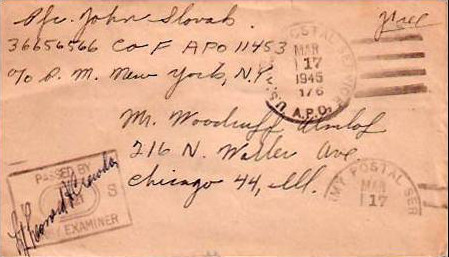 Pfc. John Slovak
Free
36656566 Co F APO 11453
c/o P. M. New York, N.Y.
U.S. ARMY POSTAL SERVICE
MAR
17
1945
176
A.P.O.
Mr. Woodruff Almlof
216 N. Waller Ave
Chicago 44, Ill.
PASSED BY
S
ARMY EXAMINER
ARMY POSTAL SER
MAR
17